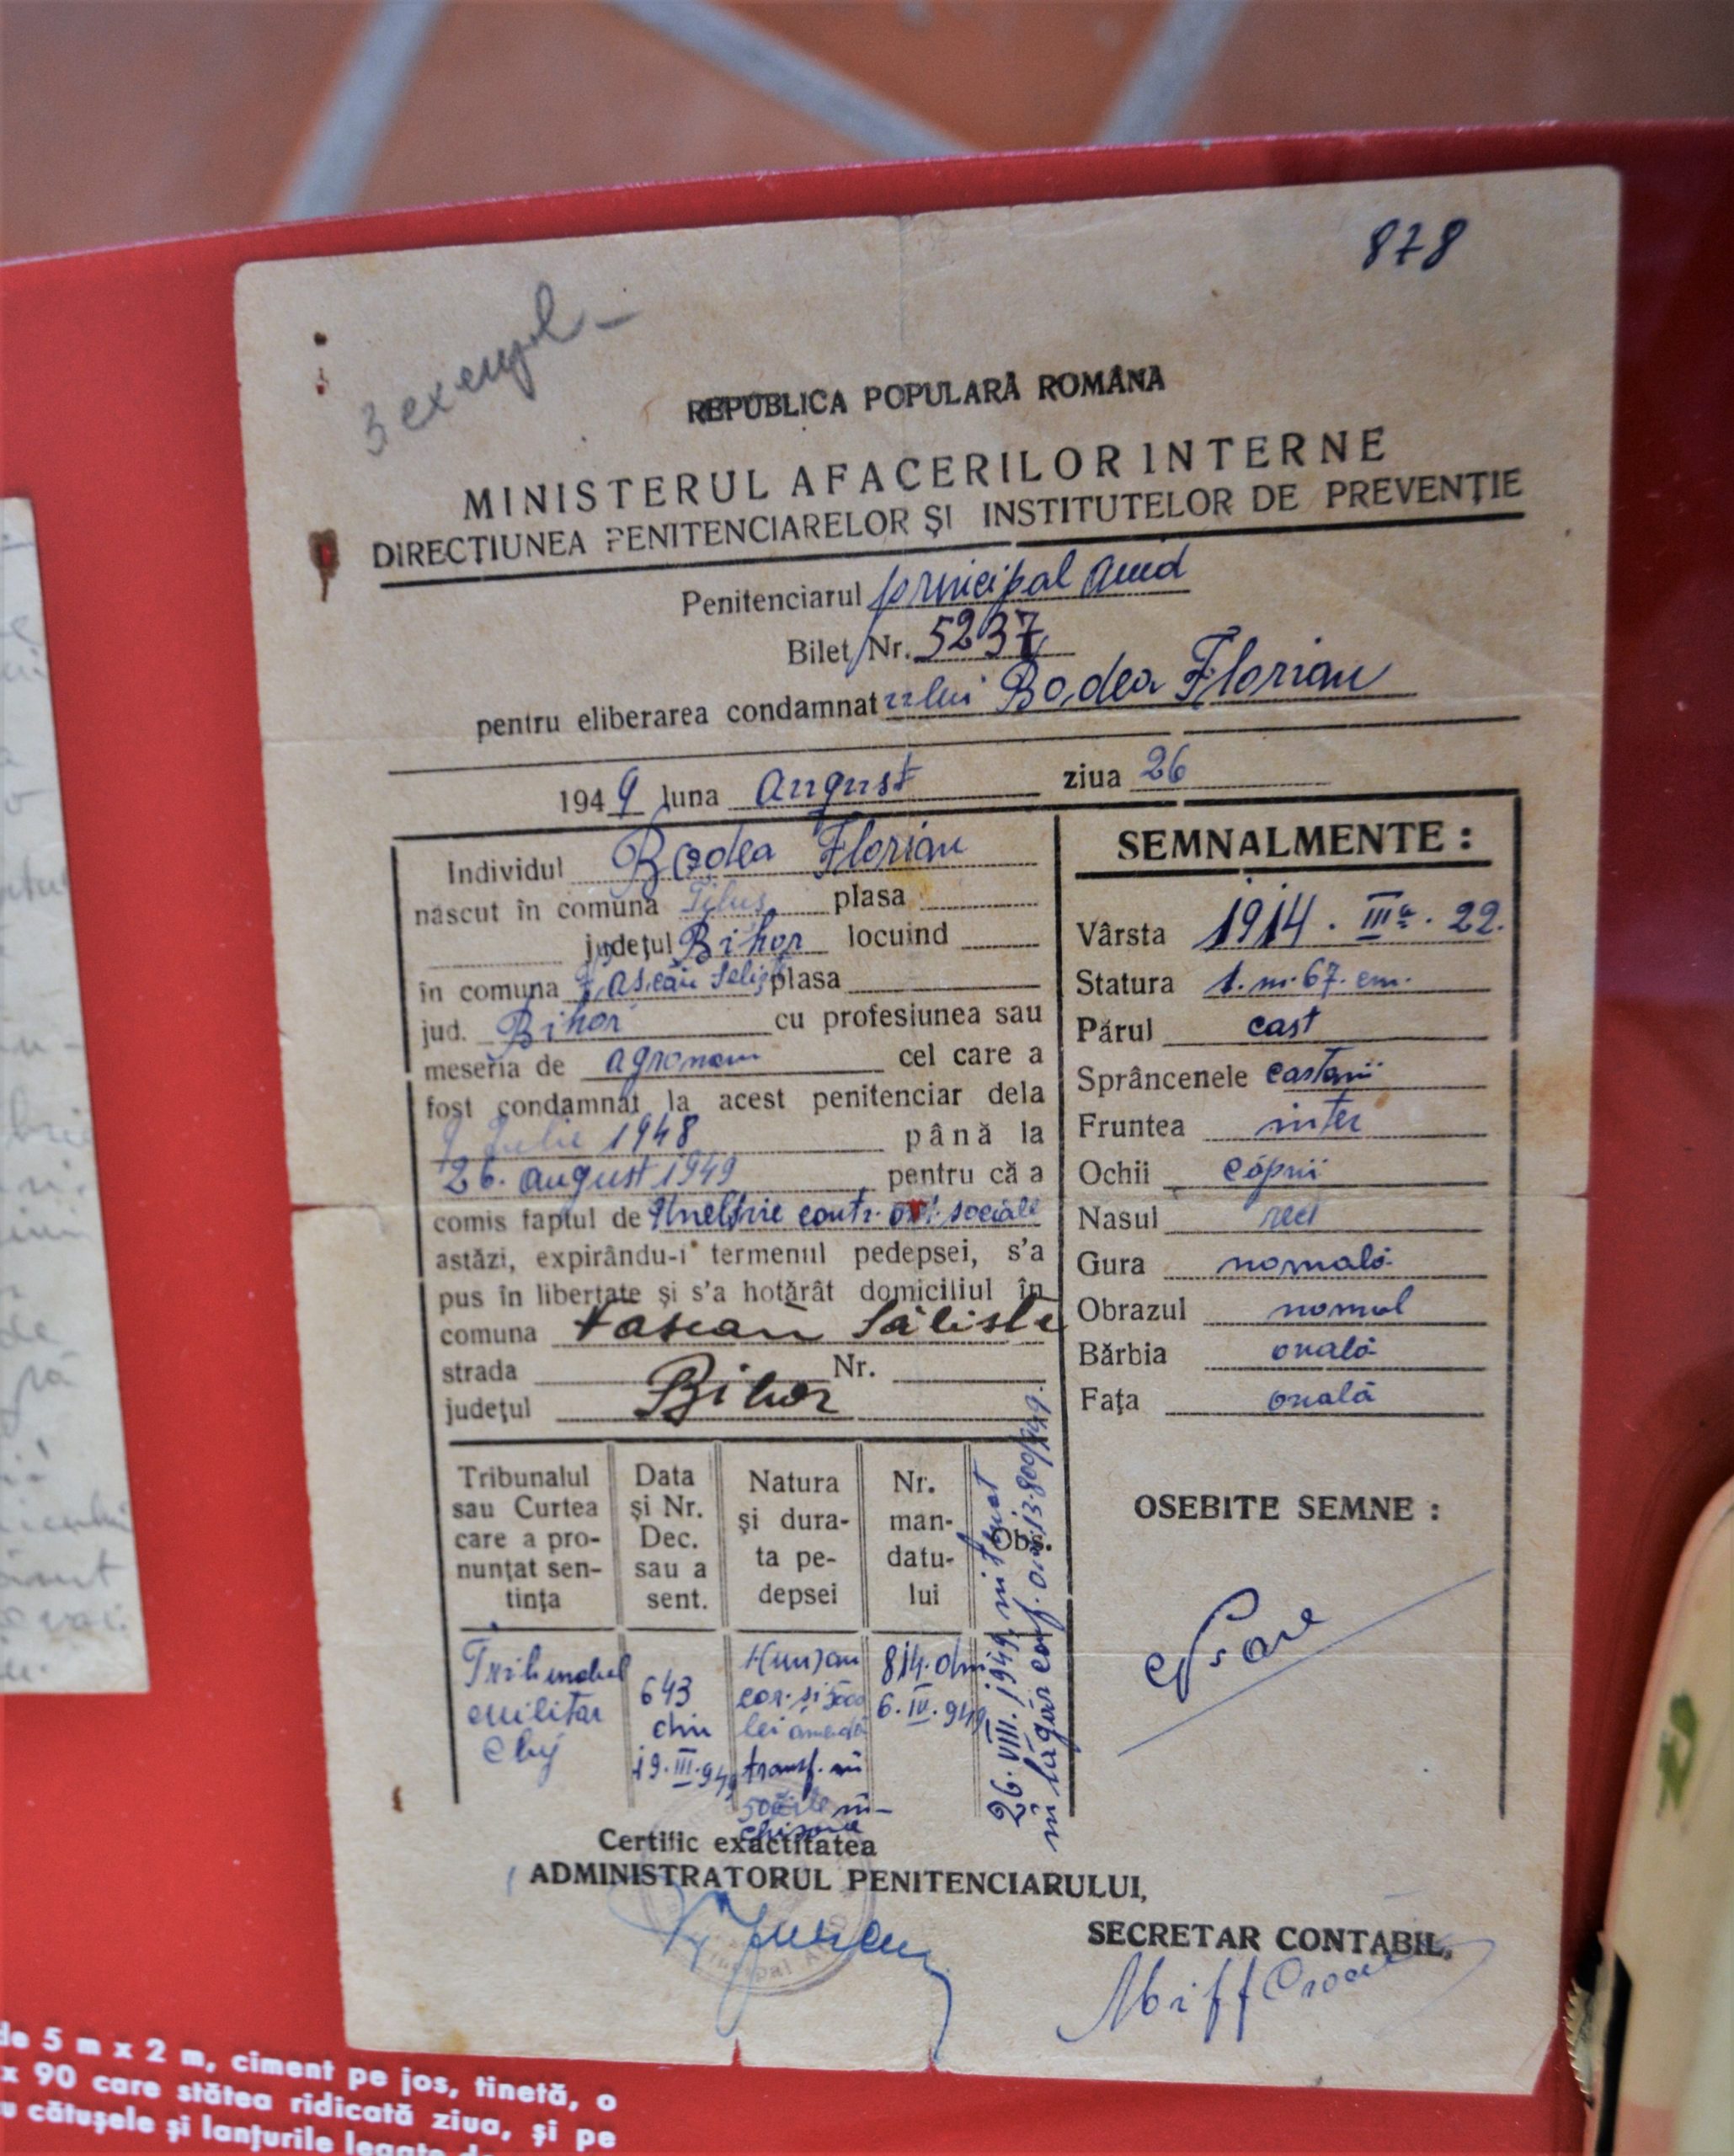 878
3 exempl
REPUBLICA POPULARĂ ROMÂNA
MINISTERUL AFACERILOR INTERNE
DIRECȚIUNEA PENITENCIARELOR ȘI INSTITUTELOR DE PREVENȚIE
Penitenciarul principal Aiud
Bilet Nr. 5237
pentru eliberarea condamnatului Bodea Florian
1949 luna August ziua 26
Individul Bodea Florian
născut în comuna plasa
județul Bihor locuind
în comuna plasa
jud. Bihor cu profesiunea sau
meseria de agronom cel care a
fost condamnat la acest penitenciar dela
9 Iulie 1948 până la
26. August 1949 pentru că a
comis faptul de Uneltire contr. sociale
astăzi, expirându-i termenul pedepsei, s'a
pus în libertate și s'a hotărât domiciliul în
comuna
strada Nr.
județul Bihor
SEMNALMENTE :
Vârsta 1914. III. 22.
Statura 1. m. 67. cm.
Părul cast
Sprâncenele castanii
Fruntea inter
Ochii căprii
Nasul rect
Gura normală
Obrazul normal
Bărbia ovală
Fața ovală
OSEBITE SEMNE :
Tribunalul
sau Curtea
care a pro-
nunțat sen-
tința
Data
și Nr.
Dec.
sau a
sent.
Natura
și dura-
ta pe-
depsei
Nr.
man-
datu-
lui
Obs.
Tribunalul
militar
Cluj
643
din
19. III. 949
1(un) an
cor. și 5000
lei amendă
transf. în
814. din
6. IV. 949
26. VIII. 1949
în lagăr conf. ord. 13.800/949.
Certific exactitatea
ADMINISTRATORUL PENITENCIARULUI,
SECRETAR CONTABIL,
de 5 m x 2 m, ciment pe jos, tinetă, o
x 90 care stătea ridicată ziua, și pe
cătușele și lanțurile legate